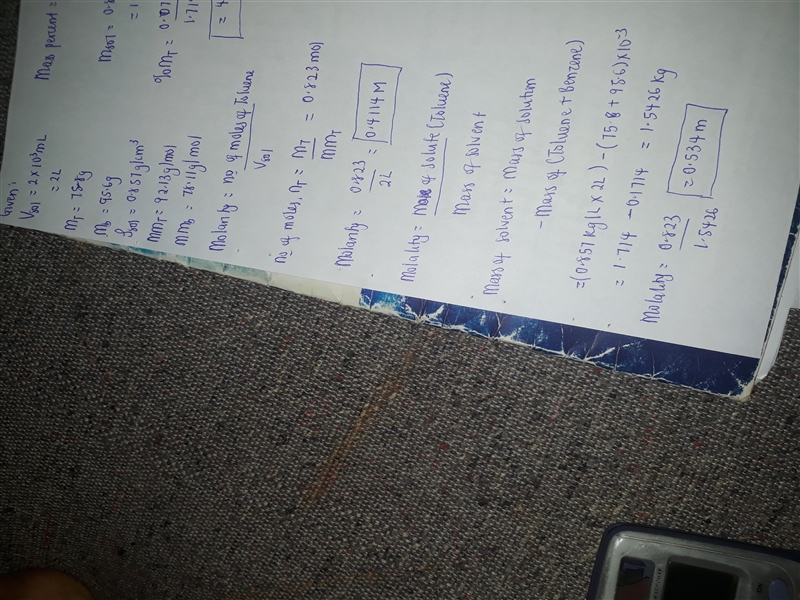 Given:
Vsol = 2 × 10³mL
= 2L
mT = 75.8g
mB = 95.6g
ρsol = 0.857g/cm³
mmT = 92.13g/mol
mmB = 78.11g/mol
Molarity = no of moles of Toluene
Vsol
no of moles, nT = mT = 0.823mol
mmT
Molarity = 0.823 = 0.4114M
2L
Molality = Mole of Solute (Toluene)
Mass of solvent
Mass of solvent = Mass of solution
- Mass of (Toluene + Benzene)
= (0.857 kg/L × 2L) - (75.8 + 95.6) × 10⁻³
= 1.714 - 0.1714 = 1.5426 kg
Molality = 0.823 = 0.534m
1.5426
Mass percent =
msol = 0.8
= 1
%mT = 0.07
1.71
= 4